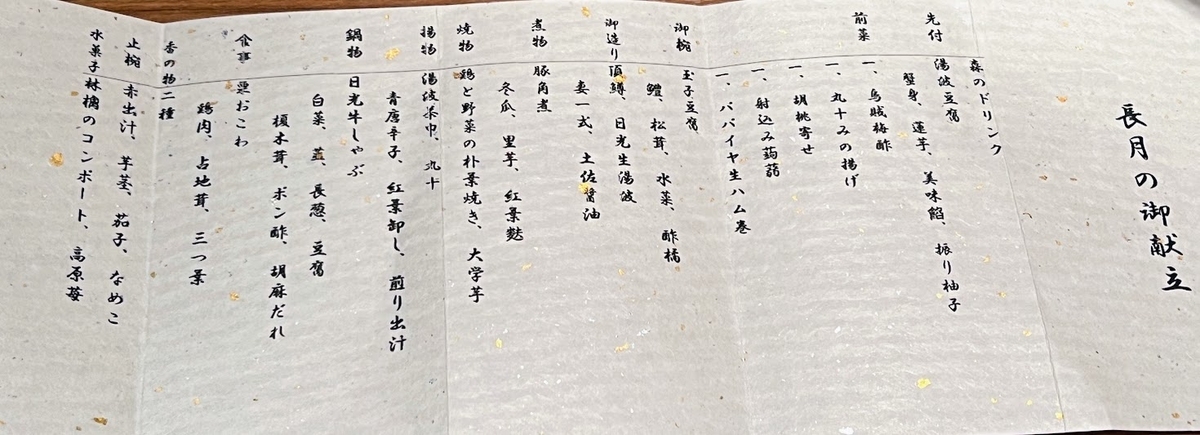 長月の御献立
森のドリンク
先付
湯波豆腐
蟹身、蓮芋、美味餡、振り柚子
前菜
一、烏賊梅酢
一、丸十みの揚げ
一、胡桃寄せ
一、射込み蒟蒻
一、パパイヤ生ハム巻
御椀
玉子豆腐
鱧、松茸、水菜、酢橘
御造り
頂鱒、日光生湯波
妻一式、土佐醤油
煮物
豚角煮
冬瓜、里芋、紅葉麩
焼物
鶏と野菜の朴葉焼き、大学芋
揚物
湯波茶巾、丸十
青唐辛子、紅葉卸し、煎り出汁
鍋物
日光牛しゃぶ
白菜、韮、長葱、豆腐
榎木茸、ポン酢、胡麻だれ
食事
栗おこわ
鶏肉、占地茸、三つ葉
香の物
二種
止椀
赤出汁、芋茎、茄子、なめこ
水菓子
林檎のコンポート、高原苺